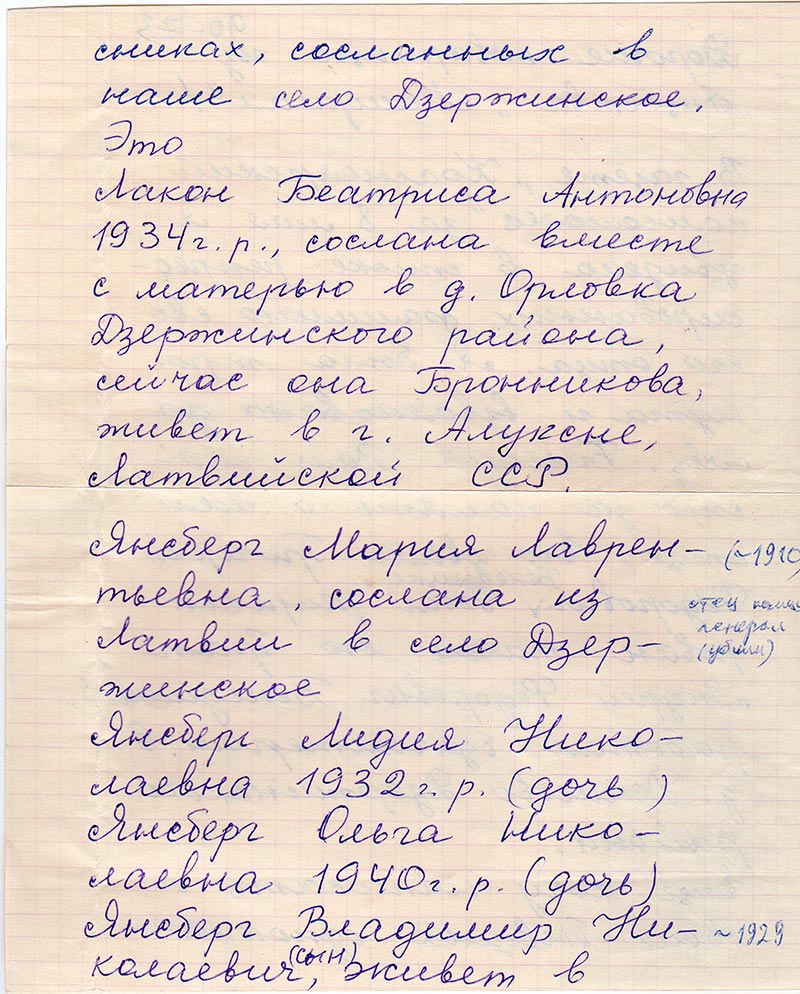 сниках, сосланных в
наше село Дзержинское.
Это
Лакон Беатриса Антоновна
1934 г. р., сослана вместе
с матерью в д. Орловка
Дзержинского района,
сейчас она Бронникова,
живет в г. Алуксне,
Латвийской ССР.
Янсберг Мария Лаврен- (~1910)
тьевна, сослана из
отец
Латвии в село Дзер-
генерал
(убили)
жинское
Янсберг Лидия Нико-
лаевна 1932 г. р. (дочь)
Янсберг Ольга Нико-
лаевна 1940 г. р. (дочь)
Янсберг Владимир Ни- ~1929
колаевич (сын), живет в